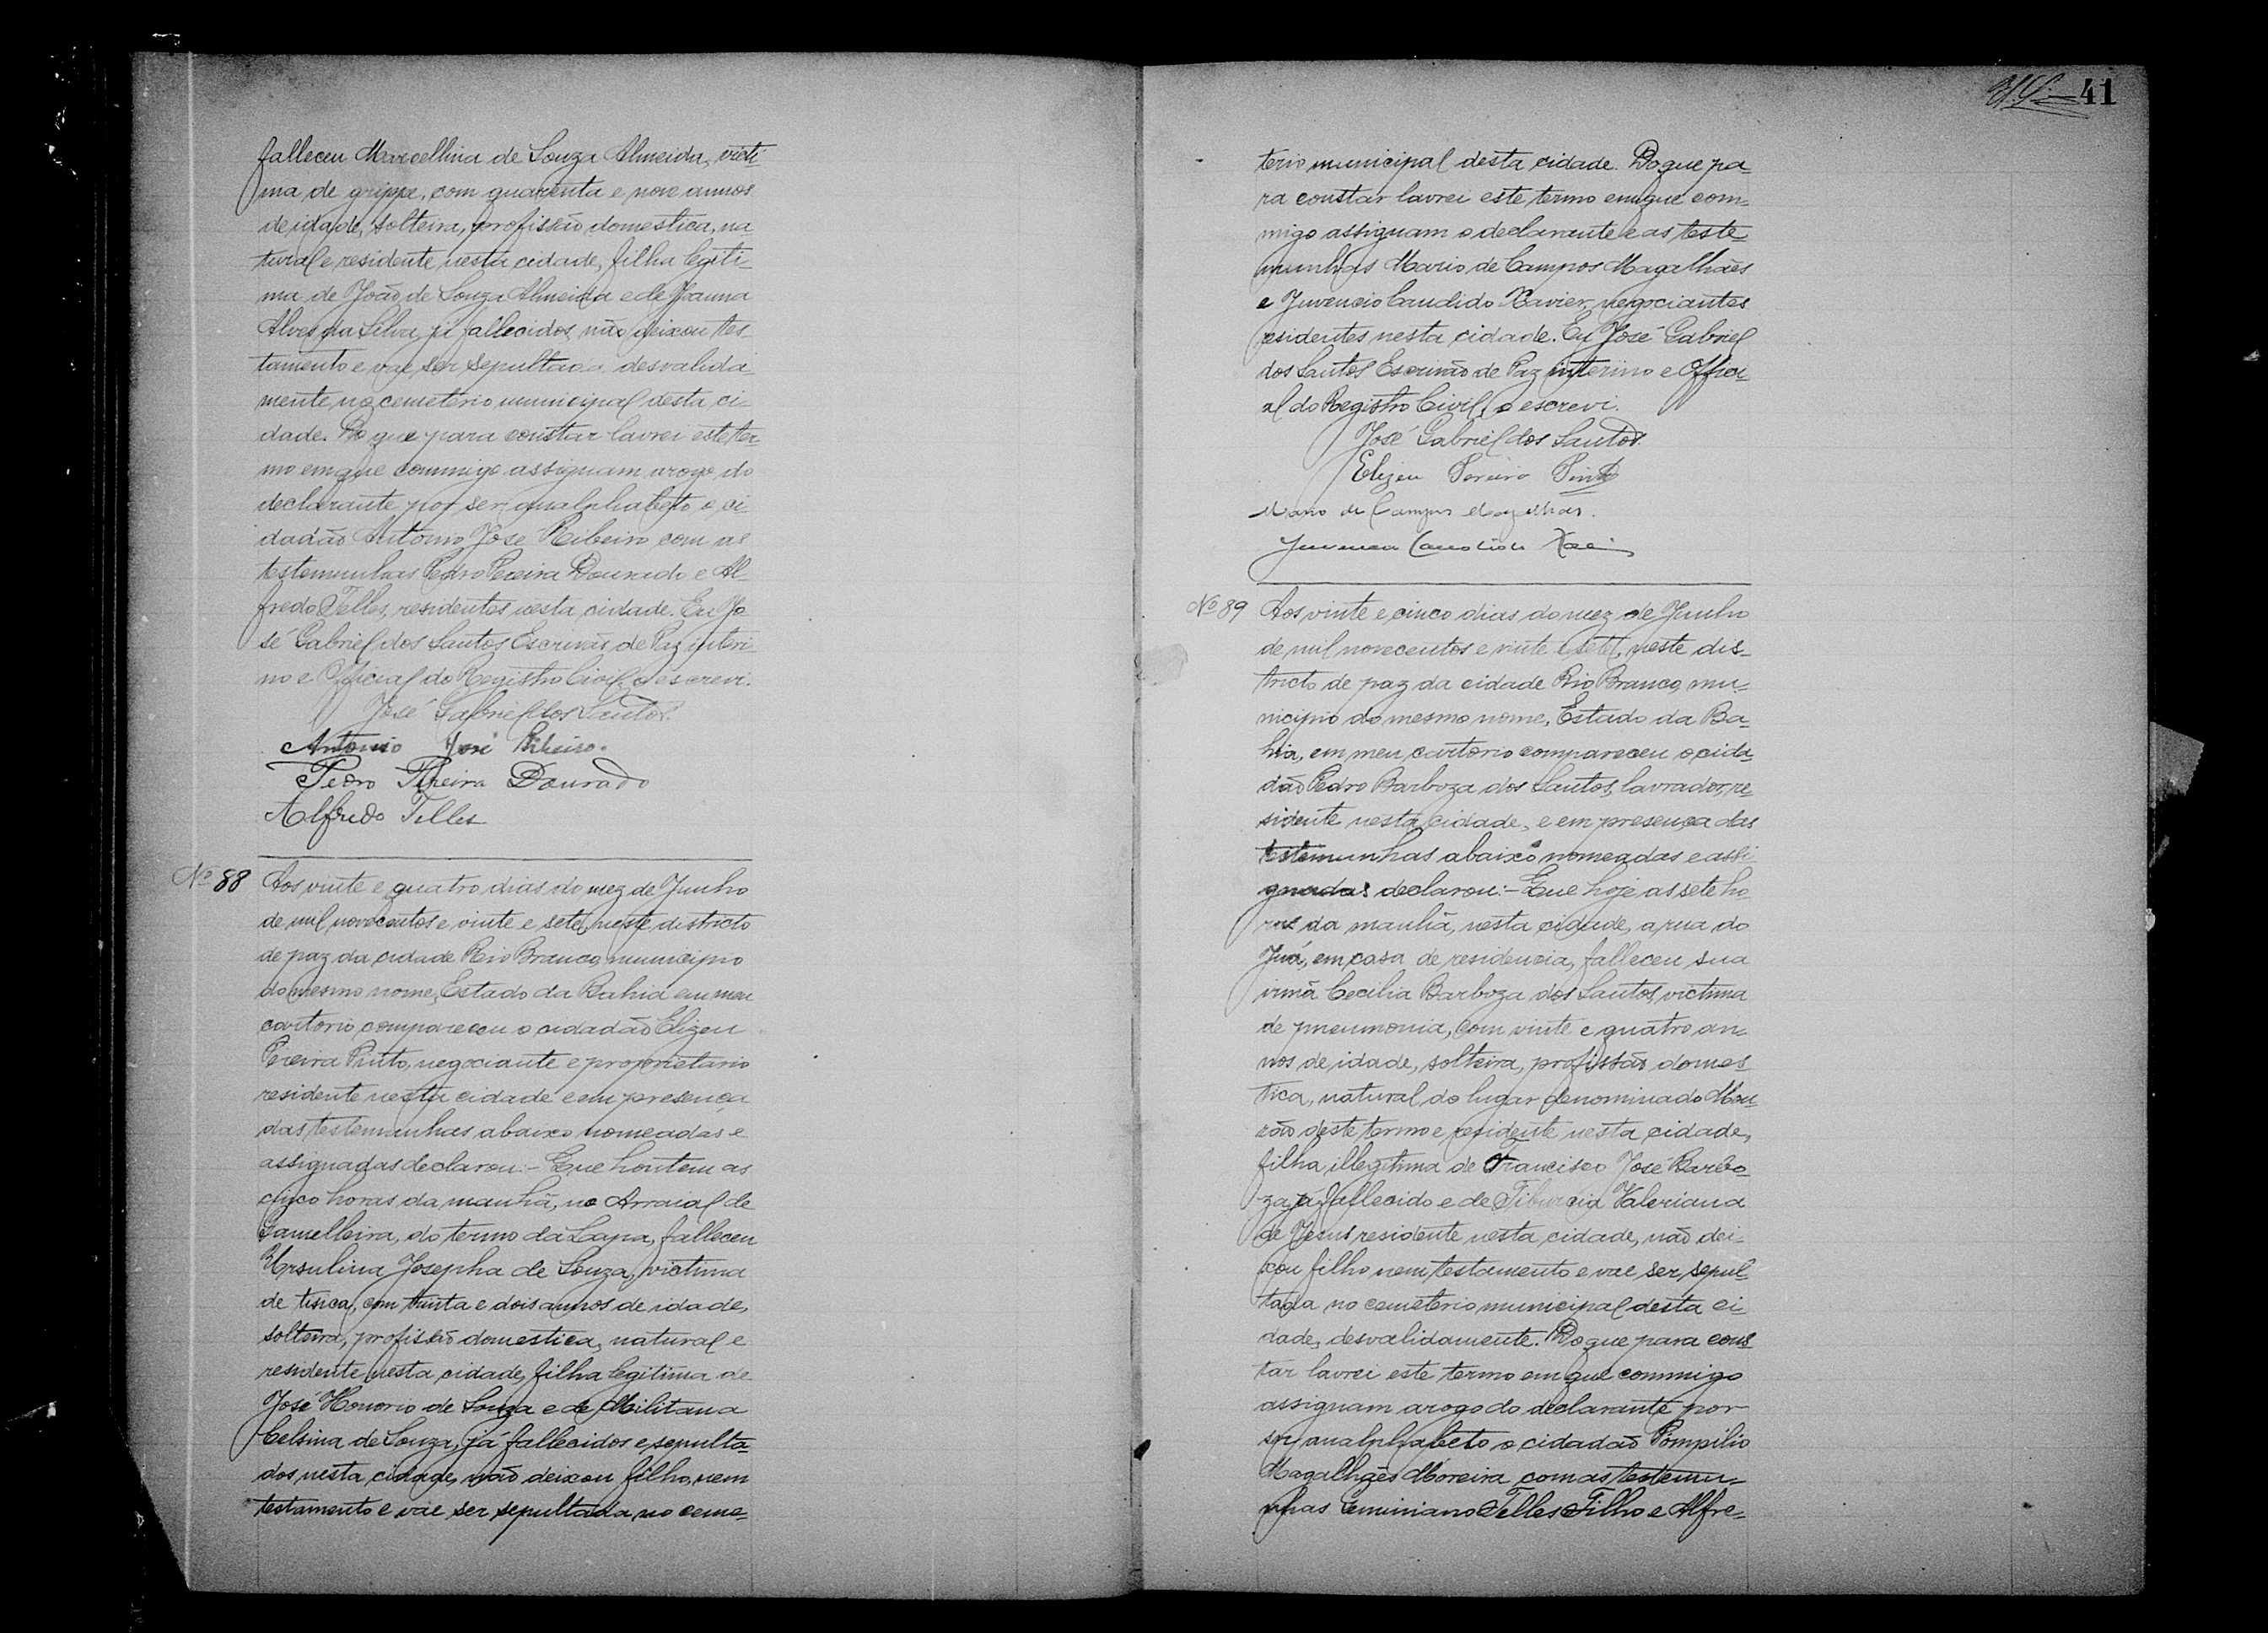 falleceu Marcellina de Souza Almeida, victi-
ma de grippe, com quarenta e nove annos
de idade, solteira, profissão domestica, na-
tural e residente nesta cidade, filha legiti-
ma de João de Souza Almeida e de Joanna
Alves da Silva, já fallecidos, não deixou tes-
tamento e vae ser sepultada desvalida-
mente no cemeterio municipal desta ci-
dade. Do que para constar lavrei este ter-
mo em que commigo assignam arogo do
declarante por ser analphabeto o ci-
dadão Antonio José Ribeiro com as
testemunhas Pedro Pereira Dourado e Al-
fredo Telles, residentes nesta cidade. Eu Jo-
sé Gabriel dos Santos Escrivão de Paz interi-
no e Official do Registro Civil, o escrevi.
José Gabriel dos Santos.
Antonio José Ribeiro.
Pedro Pereira Dourado
Alfredo Telles
Nº 88 Aos vinte e quatro dias do mez de Junho
de mil novecentos e vinte e sete, neste districto
de paz da cidade Rio Branco, municipio
do mesmo nome, Estado da Bahia em meu
cartorio, compareceu o cidadão Elizeu
Pereira Pinto, negociante e proprietario
residente nesta cidade e em presença
das testemunhas abaixo nomeadas e
assignadas declarou:- Que hontem as
cinco horas da manhã, no Arraial de
Gamelleira, do termo da Lapa, falleceu
Ursulina Josepha de Souza, victima
de tisica, com trinta e dois annos de idade,
solteira, profissão domestica, natural e
residente nesta cidade, filha legitima de
José Honorio de Souza e de Militana
Celsina de Souza, já fallecidos e sepulta-
dos nesta cidade, não deixou filho, nem
testamento e vae ser sepultada no ceme-
41
terio municipal desta cidade. Do que pa-
ra constar lavrei este termo em que com-
migo assignam o declarante e as teste-
munhas Mario de Campos Magalhães
e Juvencio Candido Xavier, negociantes
residentes nesta cidade. Eu José Gabriel
dos Santos Escrivão de Paz interino e Offici-
al do Registro Civil, o escrevi.
José Gabriel dos Santos.
Elizeu Pereira Pinto
Mario de Campos Magalhães.
Juvencio Candido Xavier
Nº 89 Aos vinte e cinco dias do mez de Junho
de mil novecentos e vinte e sete, neste dis-
tricto de paz da cidade Rio Branco, mu-
nicipio do mesmo nome, Estado da Ba-
hia, em meu cartorio compareceu o cida-
dão Pedro Barboza dos Santos, lavrador, re-
sidente nesta cidade, e em presença das
testemunhas abaixo nomeadas e assi-
gnadas declarou:- Que hoje as sete ho-
ras da manhã, nesta cidade, a rua do
Juá, em casa de residencia, falleceu sua
irmã Cecilia Barboza dos Santos, victima
de pneumonia, com vinte e quatro an-
nos de idade, solteira, profissão domes-
tica, natural do lugar denominado Mou-
rão deste termo e residente nesta cidade,
filha illegitima de Francisco José Barbo-
za já fallecido e de Tiburcia Valeriana
de Jesus residente nesta cidade, não dei-
xou filho nem testamento e vae ser sepul-
tada no cemeterio municipal desta ci-
dade, desvalidamente. Do que para cons-
tar lavrei este termo em que commigo
assignam arogo do declarante por
ser analphabeto o cidadão Pompilio
Magalhães Moreira com as testemu-
nhas Geminiano Telles Filho e Alfre-